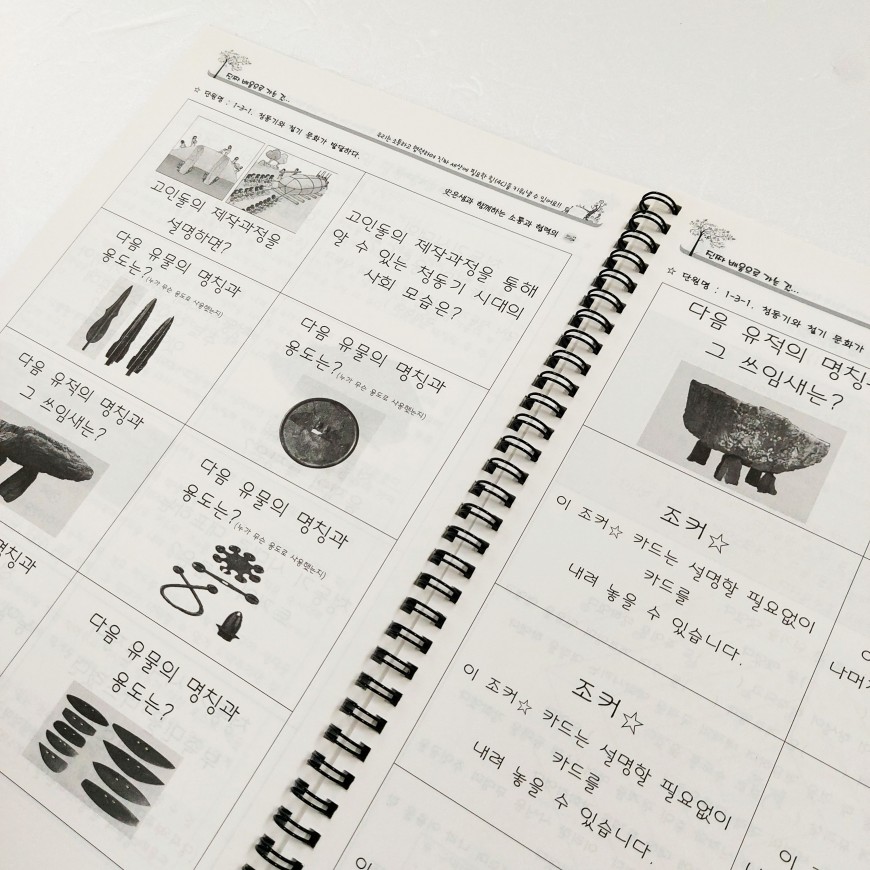 진짜 배움으로 가는 길...
☆ 단원명 : 1-3-1. 청동기와 철기 문화가 발달하다.
고인돌의 제작과정을
설명하면?
고인돌의 제작과정을 통해
알 수 있는 청동기 시대의
사회 모습은?
다음 유물의 명칭과
용도는?(누가 무슨 용도로 사용했는지)
다음 유물의 명칭과
용도는?(누가 무슨 용도로 사용했는지)
다음 유적의 명칭과
그 쓰임새는?
다음 유물의 명칭과
용도는?(누가 무슨 용도로 사용했는지)
명칭과
다음 유물의 명칭과
용도는?
진짜 배움으로 가는 길...
☆ 단원명 : 1-3-1. 청동기와 철기 문화가
다음 유적의 명칭
그 쓰임새는?
조커☆
이 조커☆ 카드는 설명할 필요없이
카드를
내려 놓을 수 있습니다.
조커☆
이 조커☆ 카드는 설명할 필요없이
카드를
내려 놓을 수 있습니다.